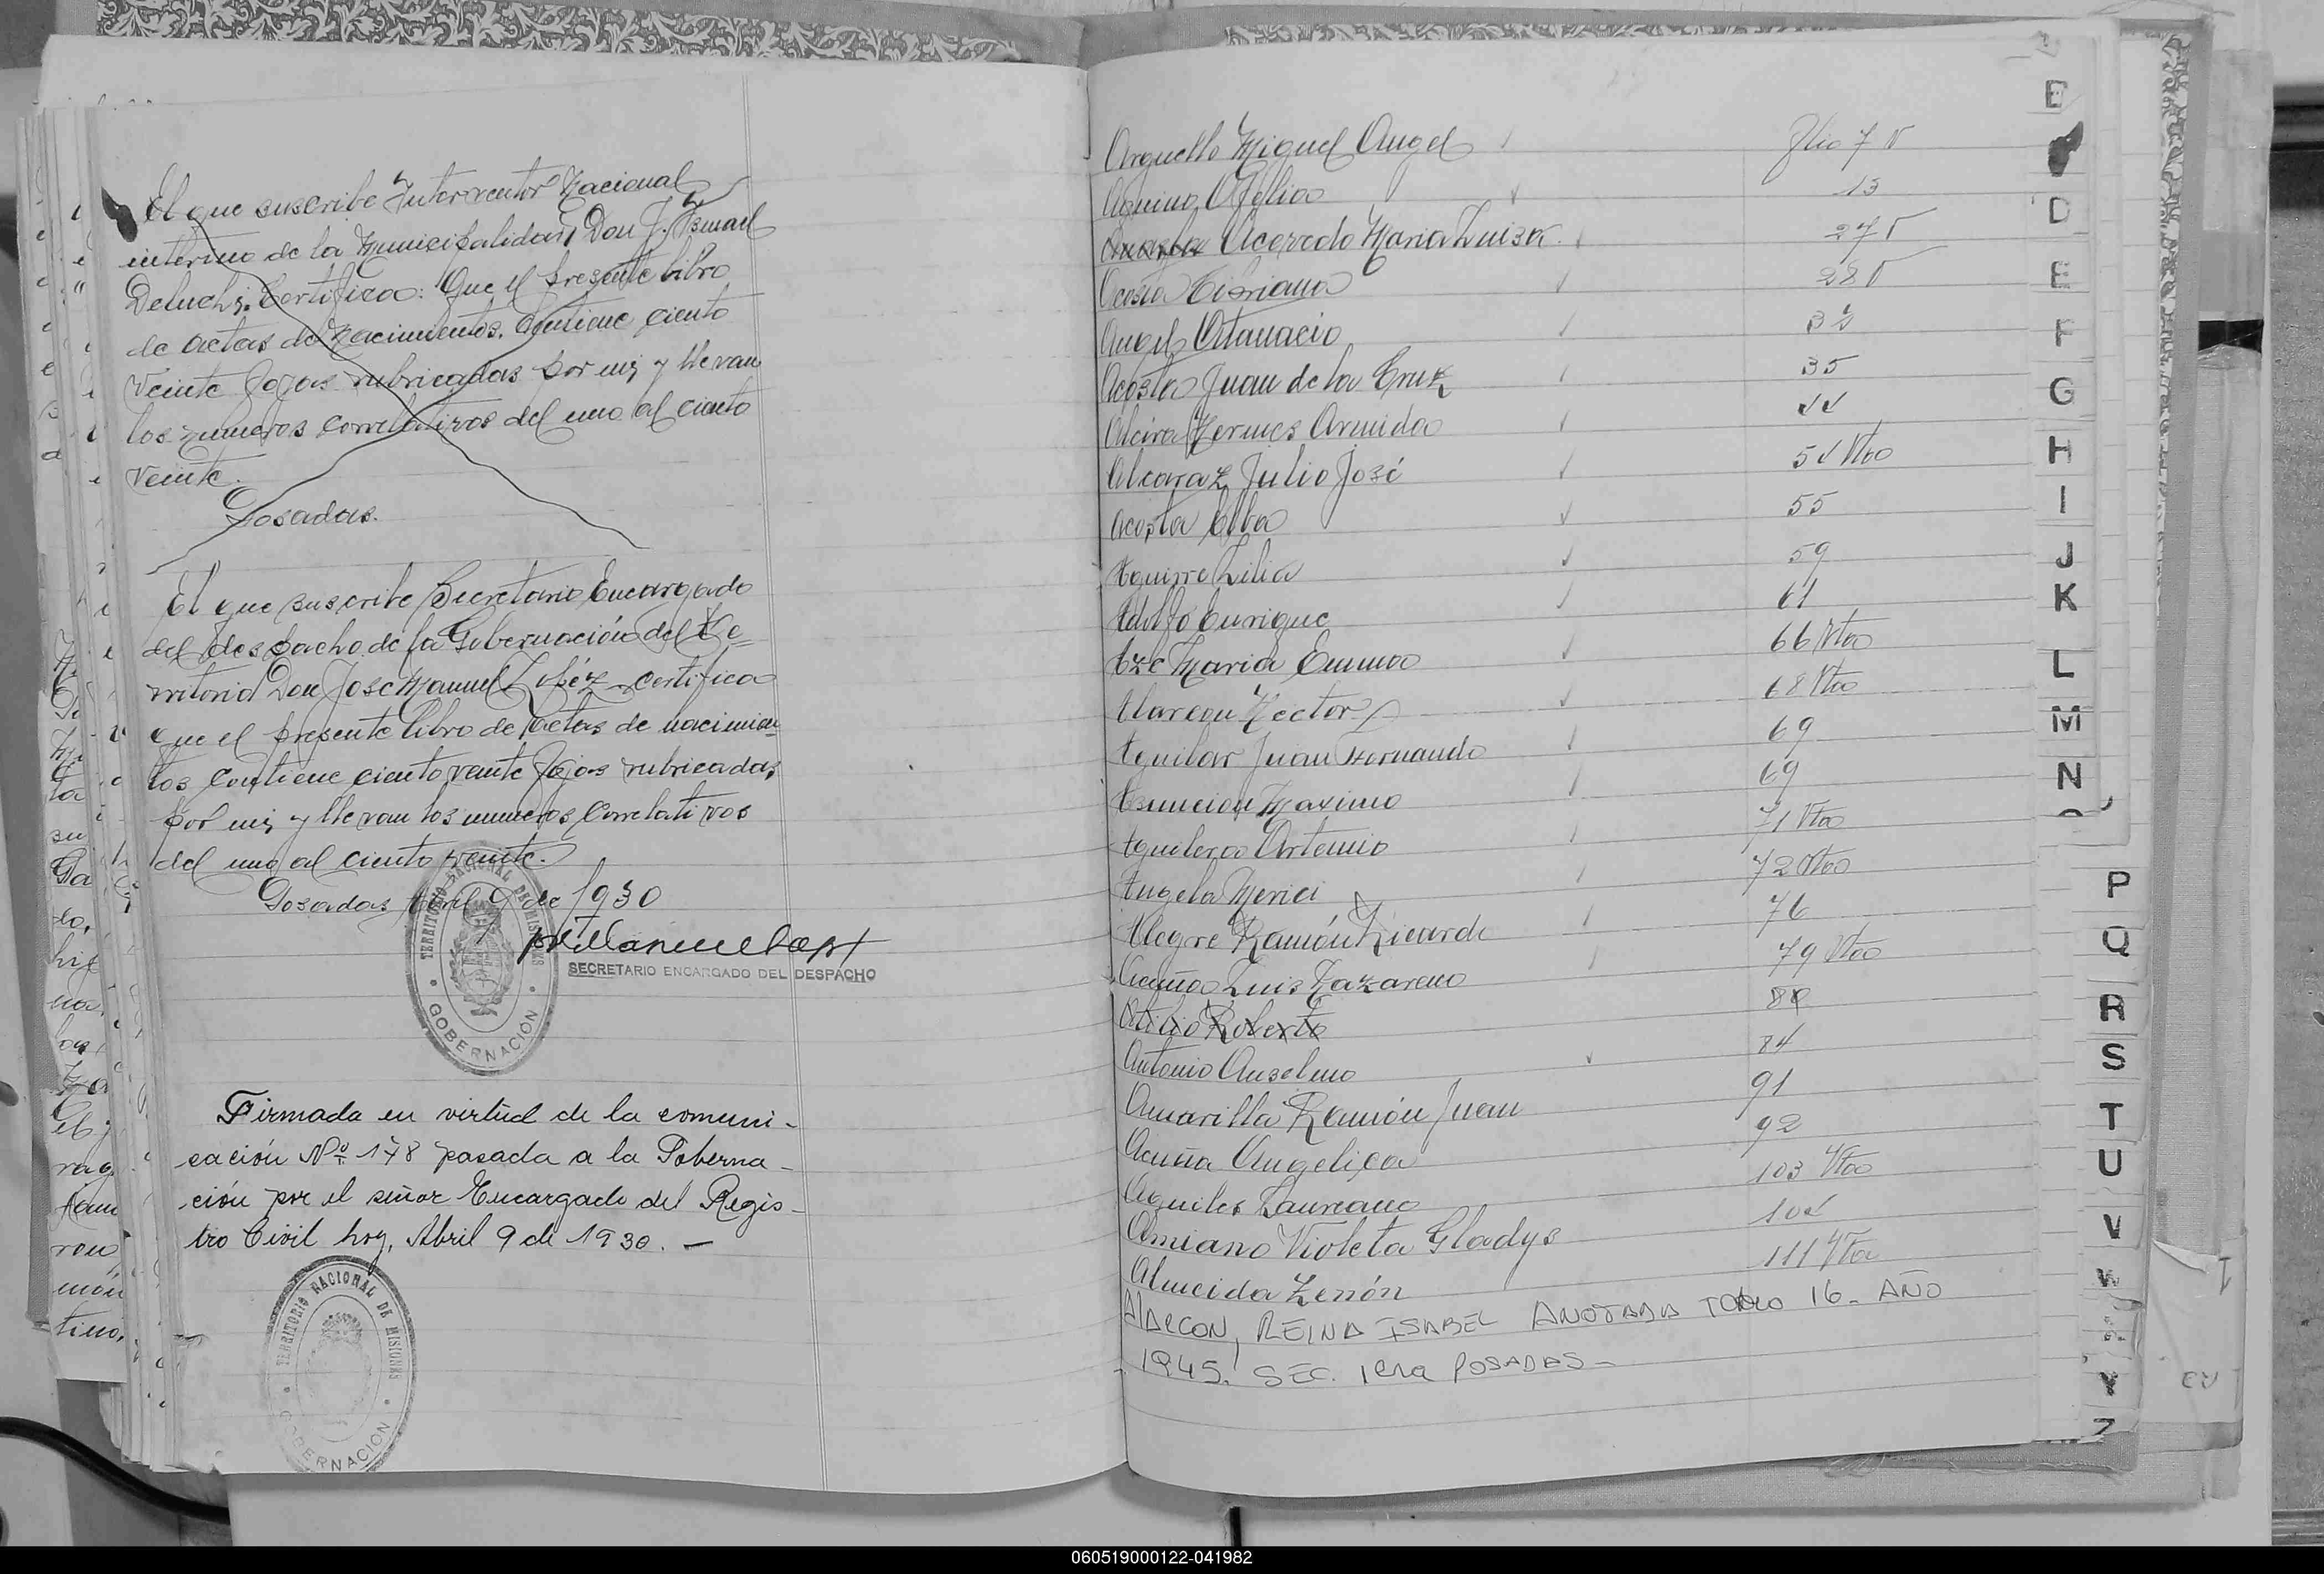 El que suscribe Interventor Nacional
interino de la Municipalidad, Don J. Ismael
Deluchi, Certifica: Que el presente libro
de actas de Nacimientos. Contiene ciento
veinte fojas rubricadas por mi, y llevan
los numeros correlativos del uno al ciento
veinte.
Posadas.
El que suscribe Secretario Encargado
del despacho de la Gobernación del Te=
rritorio Don Jose Manuel López certifica
que el presente libro de actas de nacimien=
tos contiene ciento veinte fojas rubricadas
por mi, y llevan los numeros correlativos
del uno al ciento veinte.
Posadas Abril 9 de 1930
SECRETARIO ENCARGADO DEL DESPACHO
TERRITORIO NACIONAL DE MISIONES
GOBERNACION
Firmada en virtud de la comuni-
cación Nº 178 pasada a la Goberna-
ción por el señor Encargado del Regis-
tro Civil hoy, Abril 9 de 1930. —
TERRITORIO NACIONAL DE MISIONES
GOBERNACION
Arguello Miguel Angel flio 7 V
Aquino Ofelia 13
Acevedo Maria Luisa. 27 V
Acosta Cipriana 28 V
Angel Atanacio
Acosta Juan de la Cruz 35
Alcira Hermes Armida 44
Alcaraz Julio José 54 Vto
Acosta Elba 55
Aguirre Lilia 59
Adolfo Enrique 61
Aze Maria Emma 66 Vto
Alarcon Hector 68 Vto
Aguilar Juan Hernando 69
Asuncion Maximo 69
Aguilera Artemio 71 Vto
Angela Merici 72 Vto
Alegre Ramón Ricardo 76
Acuña Luis Nazareno 79 Vto
Atilio Roberto
Antonio Anselmo 84
Amarilla Ramón Juan 91
Acuña Angelica 92
Aquiles Laureano 103 Vto
Amiano Violeta Gladys 104
Almeida Zenón 111 Vta
AlARCON, REINA ISABEL ANOTADA TOMO 16- AÑO
1945. SEC. 1era POSADAS-
B
D
E
F
G
H
I
J
K
L
M
N
P
Q
R
S
T
U
V
W
Y
Z
060519000122-041982